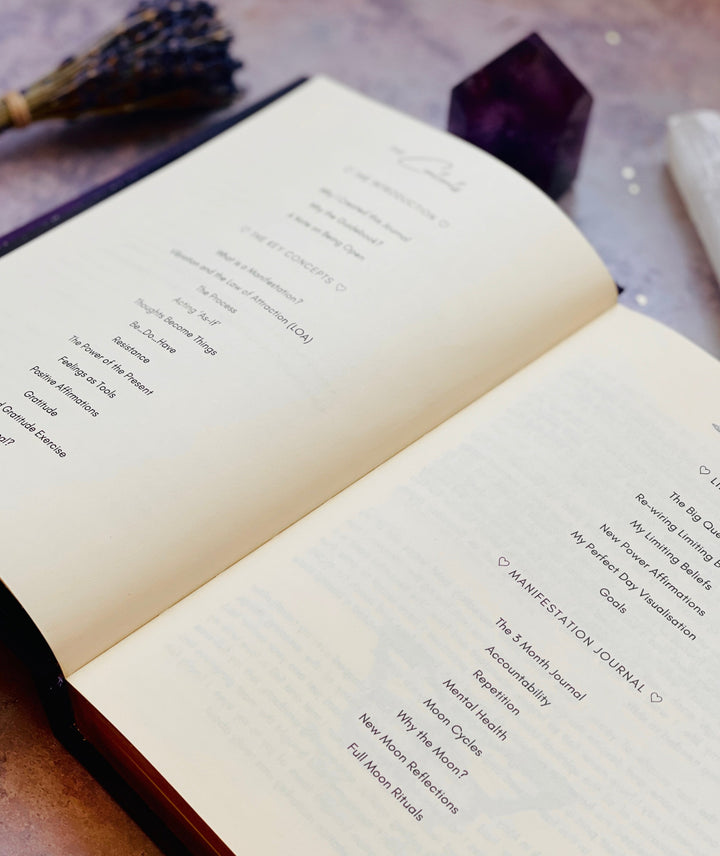 THE
Contents
♡ THE INTRODUCTION ♡
Why I Created this Journal
Why the Guidebook?
A Note on Being Open
♡ THE KEY CONCEPTS ♡
What is a Manifestation?
Vibration and the Law of Attraction (LOA)
The Process
Acting "As-If"
Thoughts Become Things
Be...Do...Have
Resistance
The Power of the Present
Feelings as Tools
Positive Affirmations
Gratitude
Gratitude Exercise
♡
The Big
Re-wiring Limiting
My Limiting Beliefs
New Power Affirmations
My Perfect Day Visualisation
Goals
♡ MANIFESTATION JOURNAL ♡
The 3 Month Journal
Accountability
Repetition
Mental Health
Moon Cycles
Why the Moon?
New Moon Reflections
Full Moon Rituals